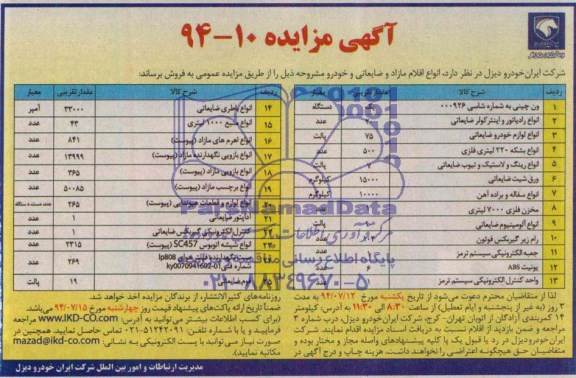 آگهی مزایده ۱۰-۹۴
شرکت ایران‌خودرو دیزل در نظر دارد، انواع اقلام مازاد و ضایعاتی و خودرو مشروحه ذیل را از طریق مزایده عمومی به فروش برساند:
ردیف شرح کالا مقدار تقریبی معیار
۱ ون چینی به شماره شاسی ۰۰۰۹۲۶ دستگاه
۲ انواع رادیاتور و اینترکولر ضایعاتی عدد
۳ انواع لوازم خودرو ضایعاتی ۷۵ پالت
۴ انواع بشکه ۲۲۰ لیتری فلزی ۵۰۰ عدد
۵ انواع رینگ و لاستیک و تیوب ضایعاتی ۷ پالت
۶ ورق شیت ضایعاتی ۱۵۰۰۰ کیلوگرم
۷ انواع سفاله و براده آهن ۱۰۰۰۰ کیلوگرم
۸ مخزن فلزی ۷۰۰۰ لیتری عدد
۹ انواع آلومینیوم ضایعاتی
۱۰ رام زیر گیربکس فوتون
۱۱ جعبه الکترونیکی سیستم ترمز
۱۲ یونیت ABS ۶ عدد
۱۳ واحد کنترل الکترونیکی سیستم ترمز
ردیف شرح کالا مقدار تقریبی معیار
۱۴ انواع باطری ضایعاتی ۳۳۰۰۰ آمپر
۱۵ انواع منبع ۱۰۰۰ لیتری ۴۳ عدد
۱۶ انواع اهرم های مازاد (پیوست) ۸۴۱ عدد
۱۷ انواع بازویی نگهدارنده مازاد (پیوست) ۱۳۹۹۹ عدد
۱۸ انواع بازویی مازاد (پیوست) ۳۶۵ عدد
۱۹ انواع برچسب مازاد (پیوست) ۵۰۰۸۵ عدد
۲۰ انواع لوازم و قطعات (پیوست) ۲۶۵
۲۱ آداپتور ضایعاتی ۱ عدد
۲۲ کنترل الکترونیکی گیربکس ضایعاتی ۱ عدد
۲۳ انواع شیشه اتوبوس SC457 (پیوست) ۲۳۱۵ عدد
lp808 شماره فنی ky0070941602-01 ۲۶۹ عدد
ضایعاتی ۱۹ پالت
لذا از متقاضیان محترم دعوت می‌شود از تاریخ یکشنبه مورخ ۹۴/۰۷/۱۲ به مدت
۳ روز (به غیر از پنجشنبه و ایام تعطیل) از ساعت ۸:۳۰ الی ۱۱:۳۰ به آدرس: کیلومتر
۱۴ کمربندی آزادگان از اتوبان تهران- کرج، شرکت ایران‌خودرو دیزل، درب شماره ۳
مراجعه و ضمن بازدید از اقلام نسبت به دریافت اسناد مزایده اقدام نمایند. شرکت
ایران‌خودرو دیزل در رد یا قبول یک یا کلیه پیشنهادهای واصله مجاز و مختار بوده و
متقاضیان حق هیچگونه اعتراضی را نخواهند داشت. هزینه چاپ و درج آگهی در
روزنامه‌های کثیرالانتشار، از برندگان مزایده اخذ خواهد شد.
ضمناً تاریخ ارائه پاکت‌های پیشنهاد قیمت روز چهارشنبه مورخ ۹۴/۰۷/۱۵ می‌باشد.
(برای کسب اطلاعات بیشتر می‌توانید به آدرس: www.IKD-CO.com مراجعه
فرمایید و یا با شماره تلفن: ۵۱۲۴۲۰۹۱-۰۲۱ تماس حاصل نمایید. همچنین در
صورت نیاز می‌توانید با پست الکترونیکی به نشانی: mazad@ikd-co.com
مکاتبه نمایید.)
مدیریت ارتباطات و امور بین الملل شرکت ایران خودرو دیزل
ParsNamadData
پایگاه اطلاع‌رسانی مناقصه
۰۲۱-۸۸۳۴۹۶۷۰-۵